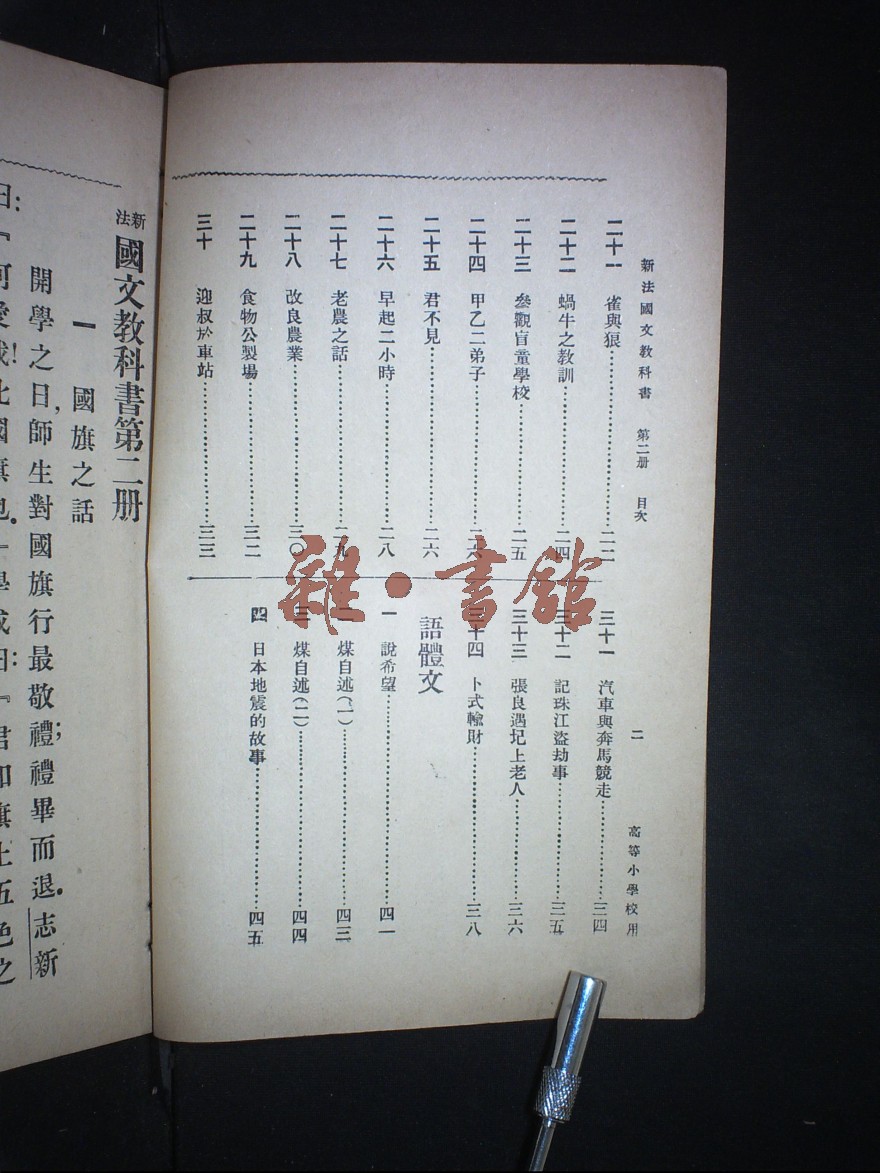 新法國文教科書 第二册 目次 二 高等小學校用
二十一 雀與狼 二二
二十二 蝸牛之教訓 二四
二十三 參觀盲童學校 二五
二十四 甲乙二弟子 二六
二十五 君不見 二六
二十六 早起二小時 二八
二十七 老農之話 二九
二十八 改良農業 三〇
二十九 食物公製場 三二
三十 迎叔於車站 三三
三十一 汽車與奔馬競走 三四
三十二 記珠江盜劫事 三五
三十三 張良遇圯上老人 三六
三十四 卜式輸財 三八
語體文
一 說希望 四一
二 煤自述(一) 四三
三 煤自述(二) 四四
四 日本地震的故事 四五
雜·書館
新法國文教科書第二册
一 國旗之話
開學之日,師生對國旗行最敬禮;禮畢而退.志新
曰:『可愛哉!此國旗也.』學成曰:『君知旗上五色之